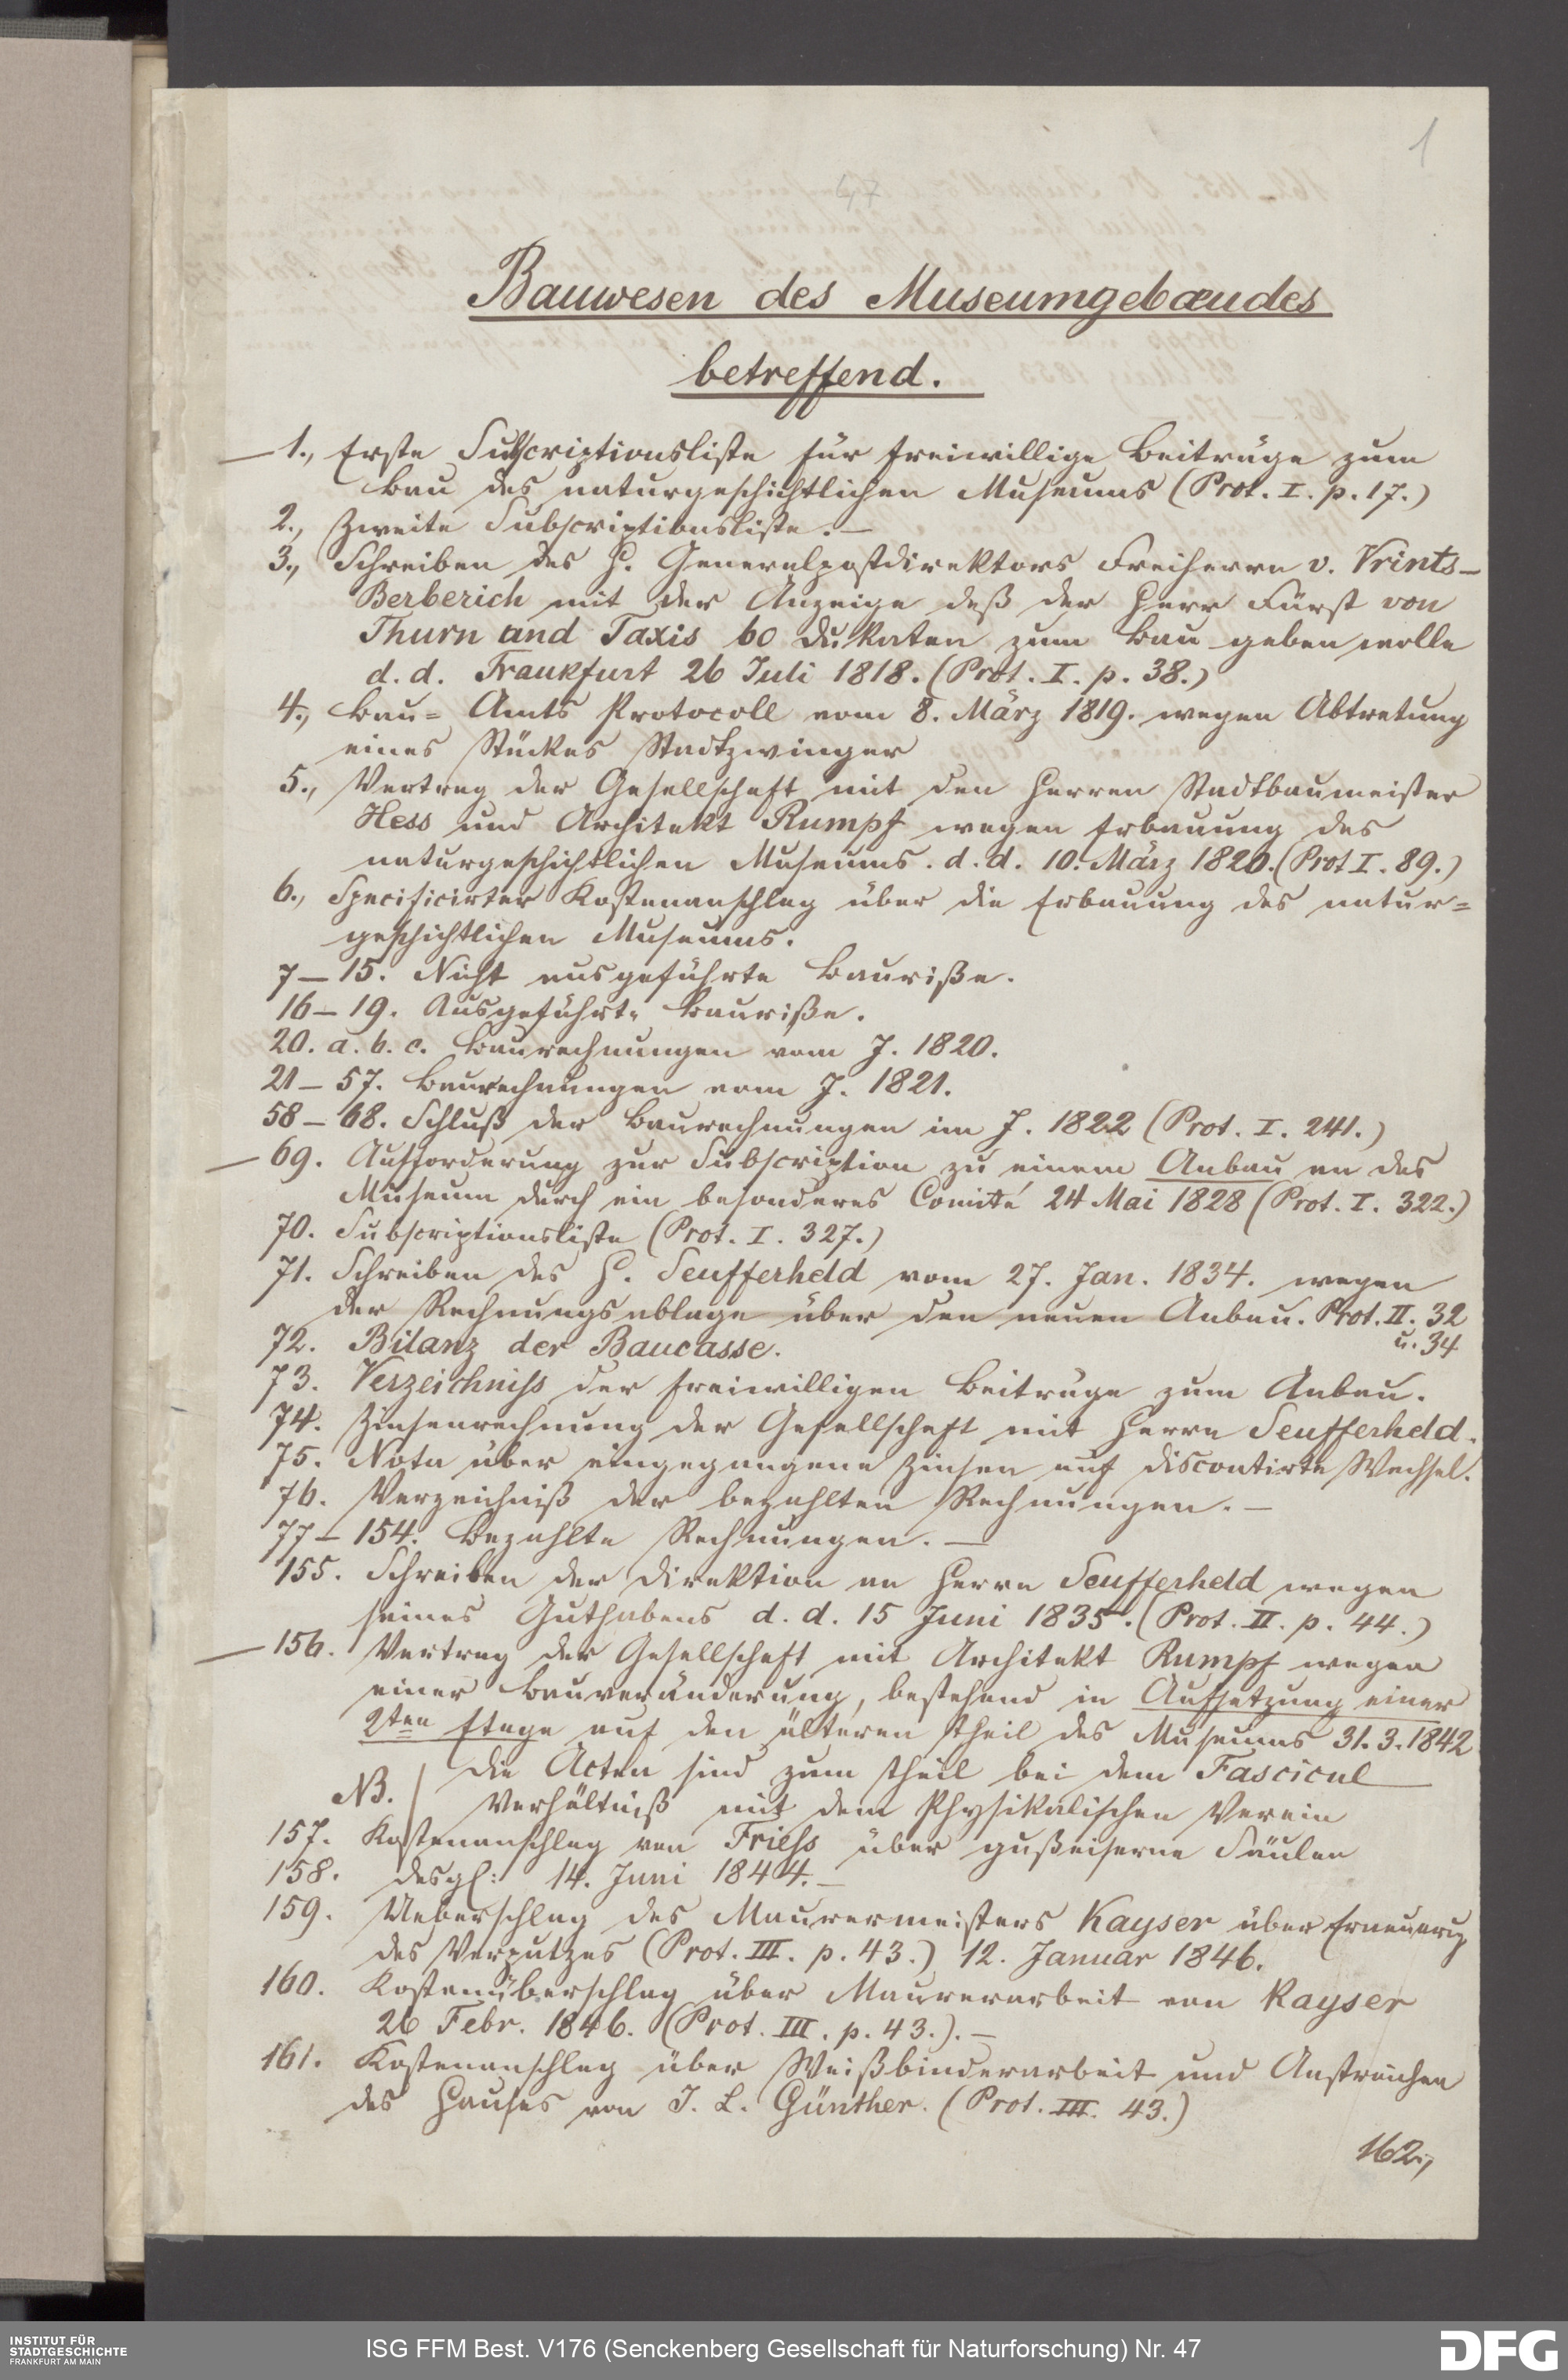 1
47
Bauwesen des Museumgebæudes
betreffend.
— 1., Erste Subscriptionsliste für freiwillige Beiträge zum
Bau des naturgeschichtlichen Museums (Prot. I. p. 17.)
2., Zweite Subscriptionsliste. —
3., Schreiben des H. Generalpostdirektors Freiherrn v. Vrints-
Berberich mit der Anzeige daß der Herr Fürst von
Thurn und Taxis 60 Dukaten zum Bau geben wolle
d. d. Frankfurt 26 Juli 1818. (Prot. I. p. 38.)
4., Bau= Amts Protocoll vom 8. März 1819. wegen Abtretung
eines Stückes Stadtzwinger
5., Vertrag der Gesellschaft mit den Herren Stadtbaumeister
Hess und Architekt Rumpf wegen Erbauung des
naturgeschichtlichen Museums. d. d. 10. März 1820. (Prot I. 89.)
6., Specificirter Kostenanschlag über die Erbauung des natur=
geschichtlichen Museums.
7 — 15. Nicht ausgeführte Bauriße.
16 — 19. Ausgeführte Bauriße.
20. a. b. c. Baurechnungen vom J. 1820.
21 — 57. Baurechnungen vom J. 1821.
58 — 68. Schluß der Baurechnungen im J. 1822 (Prot. I. 241.)
— 69. Aufforderung zur Subscription zu einem Anbau an das
Museum durch ein besonderes Comité 24 Mai 1828 (Prot. I. 322.)
70. Subscriptionsliste (Prot. I. 327.)
71. Schreiben des H. Seufferheld vom 27. Jan. 1834. wegen
der Rechnungsablage über den neuen Anbau. Prot. II. 32
u. 34
72. Bilanz der Baucasse.
73. Verzeichniss der freiwilligen Beiträge zum Anbau.
74. Zinsenrechnung der Gesellschaft mit Herrn Seufferheld.
75. Nota über eingegangene Zinsen auf discontirte Wechsel.
76. Verzeichniß der bezahlten Rechnungen. —
77 — 154. Bezahlte Rechnungen. —
155. Schreiben der Direktion an Herrn Seufferheld wegen
seines Guthabens d. d. 15 Juni 1835. (Prot. II. p. 44.)
— 156. Vertrag der Gesellschaft mit Architekt Rumpf wegen
einer Bauveränderung, bestehend in Aufsetzung einer
2ten Etage auf den älteren Theil des Museums 31. 3. 1842
NB. Die Acten sind zum Theil bei dem Fascicul
Verhältniß mit dem Physikalischen Verein
157. Kostenanschlag von Friess über gußeiserne Säulen
158. desgl: 14. Juni 1844. —
159. Ueberschlag des Maurermeisters Kayser über Erneuerung
des Verputzes (Prot. III. p. 43.) 12. Januar 1846.
160. Kostenüberschlag über Maurerarbeit von Kayser
26 Febr. 1846. (Prot. III. p. 43.). —
161. Kostenanschlag über Weißbinderarbeit und Anstreichen
des Hauses von J. L. Günther. (Prot. III. 43.)
162.,
INSTITUT FÜR
STADTGESCHICHTE
FRANKFURT AM MAIN
ISG FFM Best. V176 (Senckenberg Gesellschaft für Naturforschung) Nr. 47
DFG